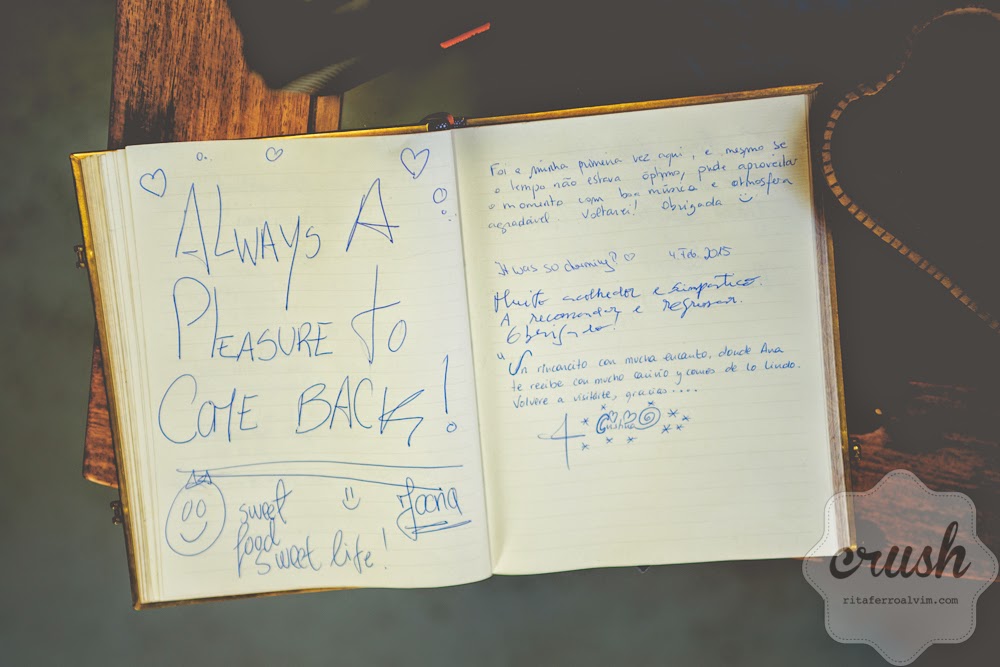 ALWAYS A
PLEASURE TO
COME BACK!
sweet
food
sweet life!
Joana
Foi a minha primeira vez aqui, e mesmo se
o tempo não estava óptimo, pude aproveitar
o momento com boa música e atmosfera
agradável Voltarei! Obrigada
It was so charming? 4. Feb. 2015
Muito acolhedor e simpático.
A recomendar e regressar.
Obrigado!
"Un rinconcito con mucha encanto, donde Ana
te recibe con mucho cariño y comes de lo lindo.
Volvere a visitarte, gracias....
Cristina
crush
ritaferroalvim.com